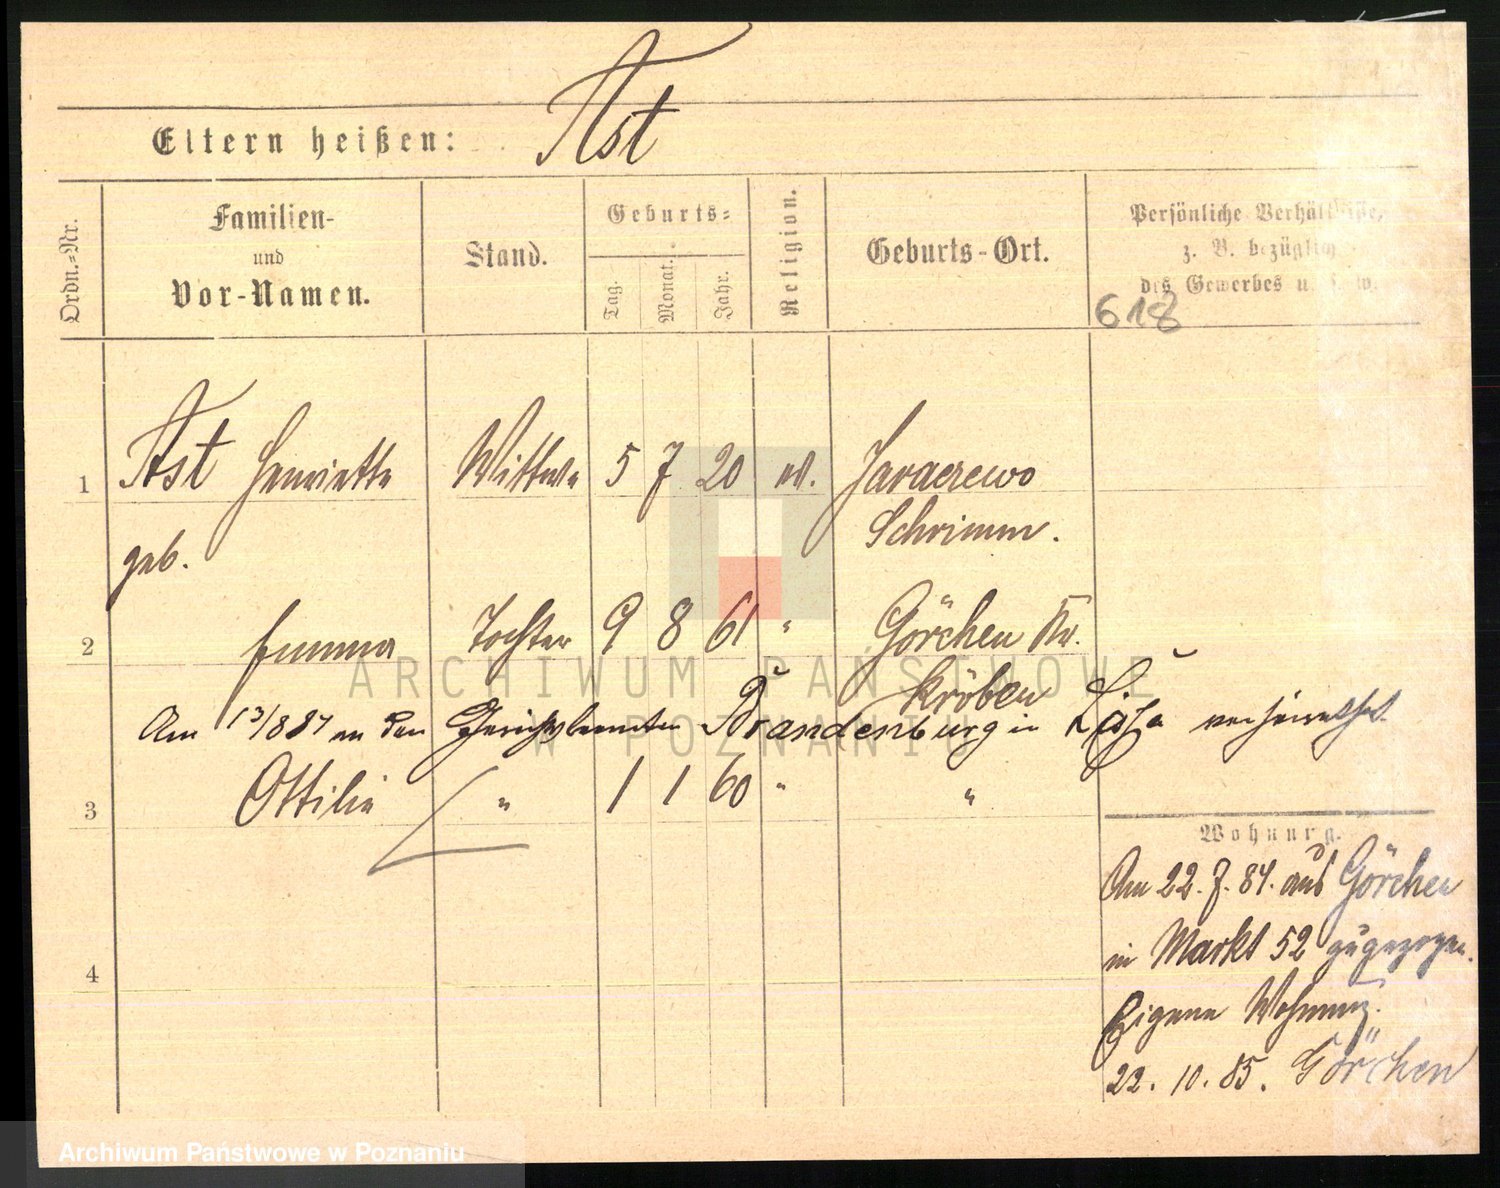 Ast
Eltern heißen:
Ordn.-Nr.
Familien-
und
Vor-Namen.
Stand.
Geburts-
Tag.
Monat.
Jahr.
Religion.
Geburts-Ort.
Persönliche Verhältnisse,
z. B. bezüglich
des Gewerbes u. s. w.
618
1 Ast Henriette Wittwe 5 7 20 ev. Jaraczewo
Schrimm.
geb.
2 Emma Tochter 9 8 61 " Görchen Kr.
Kröben
Am 13/8 87 an den Brandenburg in verheirathet.
3 Ottilie " 1 1 60 " "
4
Wohnung.
Am 22. 7. 84. aus Görchen
in Markt 52 zugezogen.
Eigene Wohnung.
22. 10. 85. Görchen
ARCHIWUM PAŃSTWOWE
W POZNANIU
Archiwum Państwowe w Poznaniu